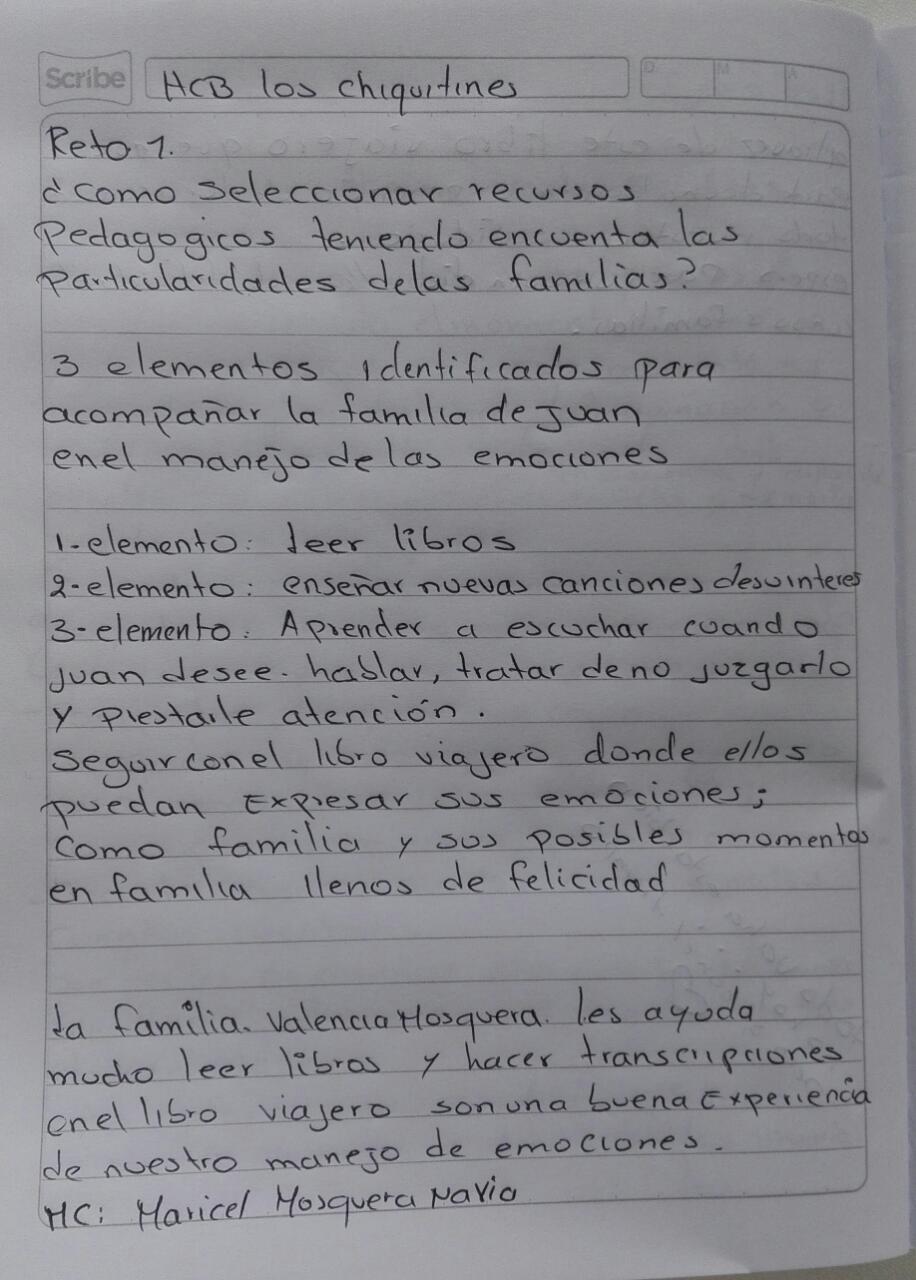 Scribe HCB los chiquitines D M A
Reto 1.
¿como seleccionar recursos
Pedagogicos teniendo encuenta las
Particularidades delas familias?
3 elementos identificados para
acompañar la familia de Juan
enel manejo de las emociones
1-elemento: leer libros
2-elemento: enseñar nuevas canciones desuinteres
3-elemento: Aprender a escuchar cuando
Juan desee. hablar, tratar de no juzgarlo
y prestarle atención.
seguir conel libro viajero donde ellos
puedan Expresar sus emociones;
como familia y sus posibles momentos
en familia llenos de felicidad
la familia. Valencia Mosquera. les ayuda
mucho leer libros y hacer transcripciones
enel libro viajero son una buena Experiencia
de nuestro manejo de emociones.
MC: Maricel Mosquera Navia